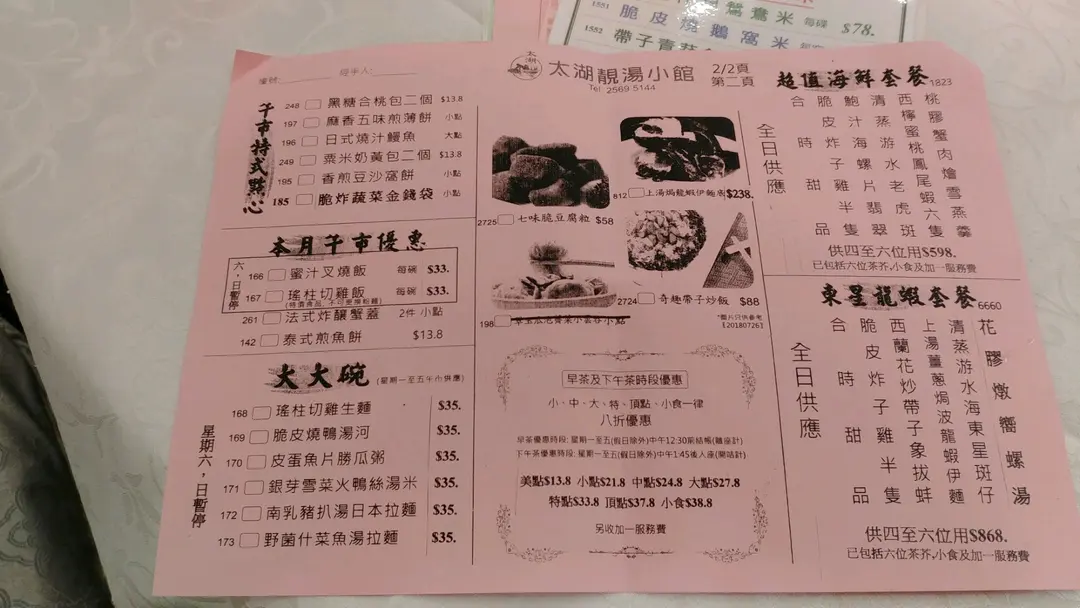 1551
鴛鴦米 每碟 $78.
1552 脆皮燒鵝窩米
帶子
編號:
經手人:
太湖靚湯小館
Tel 2569 5144
2/2頁
第二頁
午市特式點心
248 黑糖合桃包二個 $13.8
197 麻香五味煎薄餅 小點
196 日式燒汁鰻魚 大點
249 粟米奶黃包二個 $13.8
195 香煎豆沙窩餅 小點
185 脆炸蔬菜金錢袋 小點
本月午市優惠
六,日暫停
166 蜜汁叉燒飯 每碗 $33.
167 瑤柱切雞飯 每碗 $33.
(特價食品, 不可更換粉麵)
261 法式炸釀蟹蓋 2件 小點
142 泰式煎魚餅 $13.8
大大碗 (星期一至五午市供應)
星期六,日暫停
168 瑤柱切雞生麵 $35.
169 脆皮燒鴨湯河 $35.
170 皮蛋魚片勝瓜粥 $35.
171 銀芽雪菜火鴨絲湯米 $35.
172 南乳豬扒湯日本拉麵 $35.
173 野菌什菜魚湯拉麵 $35.
2725 七味脆豆腐粒 $58
812 上湯焗龍蝦伊麵底 $238.
198 小點
2724 奇趣帶子炒飯 $88
*圖片只供參考
【20180726】
早茶及下午茶時段優惠
小、中、大、特、頂點、小食一律
八折優惠
早茶優惠時段: 星期一至五(假日除外)中午12:30前結帳(離座計)
下午茶優惠時段: 星期一至五(假日除外)中午1:45後人座(開咭計)
美點$13.8 小點$21.8 中點$24.8 大點$27.8
特點$33.8 頂點$37.8 小食$38.8
另收加一服務費
超值海鮮套餐 1823
全日供應
桃膠蟹肉燴雪燕羹
西檸蜜桃鳳尾蝦六隻
清蒸游水老虎斑
鮑汁海螺片翡翠
脆皮炸子雞半隻
合時甜品
供四至六位用$598.
已包括六位茶芥,小食及加一服務費
東星龍蝦套餐 6660
全日供應
花膠燉嚮螺湯
清蒸游水海東星斑仔
上湯薑蔥焗波龍蝦伊麵
西蘭花炒帶子象拔蚌
脆皮炸子雞半隻
合時甜品
供四至六位用$868.
已包括六位茶芥,小食及加一服務費